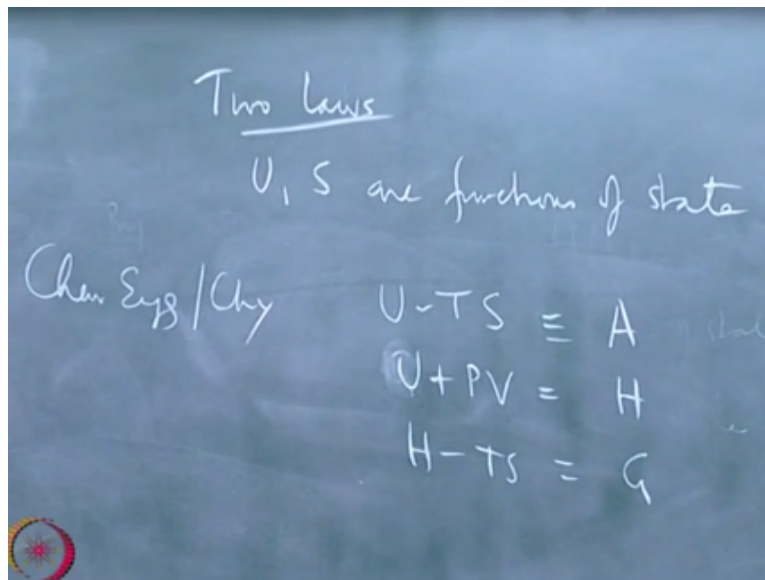 Two Laws
U, S are functions of state
Chem Engg / Chy
U - TS ≡ A
U + PV = H
H - TS = G